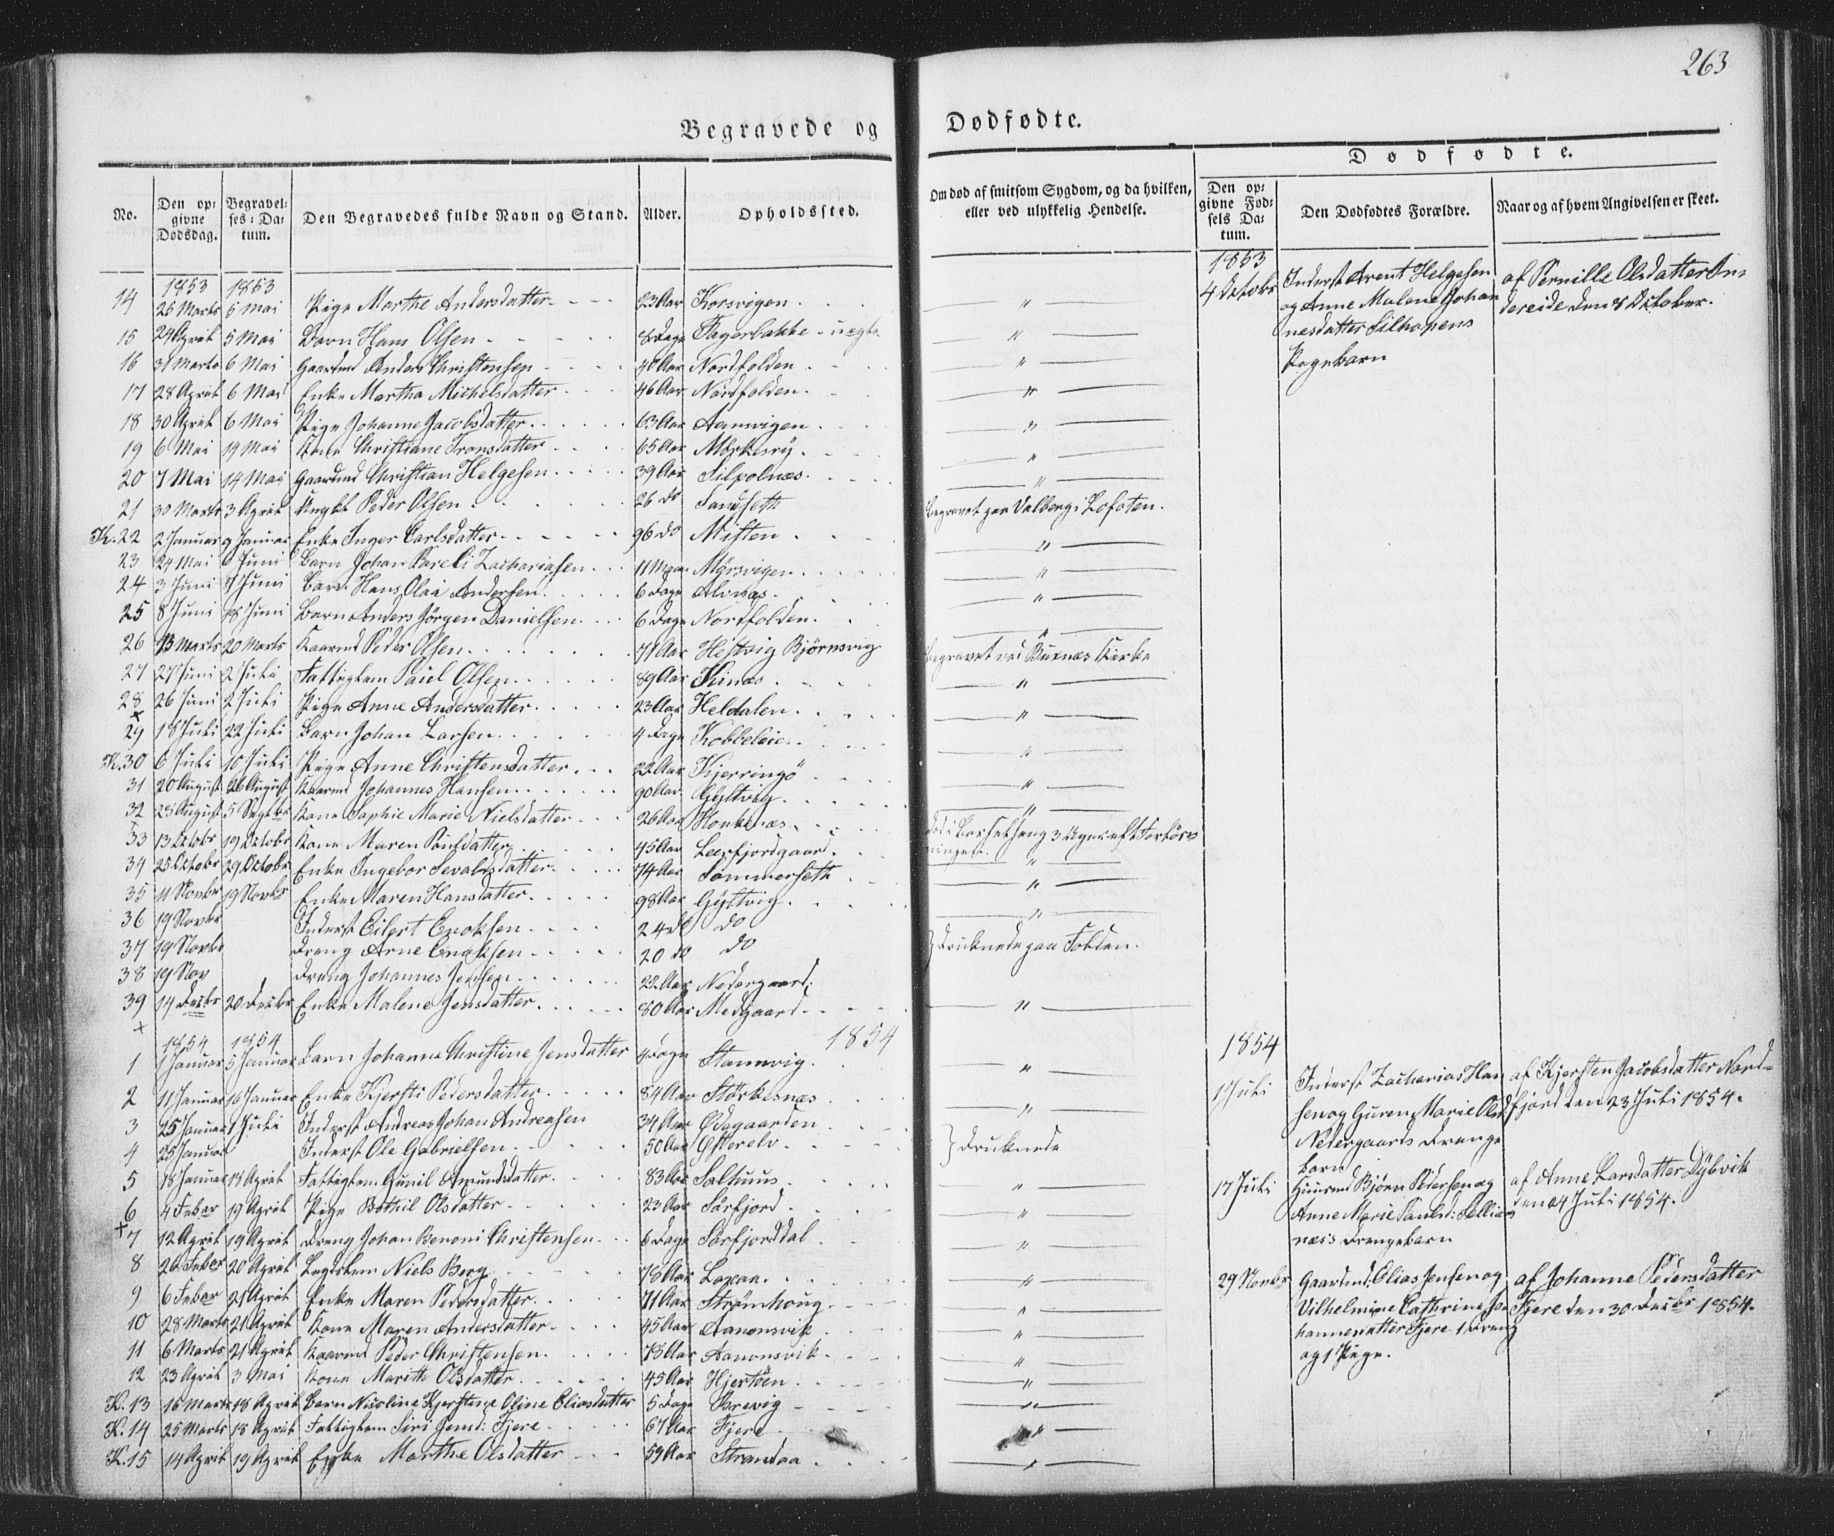 263
Begravede og Dødfødte.
Dødfødte.
No. Den opgivne Dødsdag. Begravelses-Datum. Den Begravedes fulde Navn og Stand. Alder. Opholdssted. Om død af smitsom Sygdom, og da hvilken, eller ved ulykkelig Hendelse. Den opgivne Fødsels Datum. Den Dødfødtes Forældre. Naar og af hvem Angivelsen er skeet.
1853 1853
14 26 Marts 5 Mai Pige Marthe Andersdatter 23 Aar Korsvigen "
15 24 April 5 Mai Barn Hans Olsen 8 Dage Fagerbakke - uægte "
16 31 Marts 6 Mai Gaardmd Anders Christensen 40 Aar Nordfolden "
17 28 April 6 Mai Enke Martha Michelsdatter 46 Aar Nordfolden "
18 30 April 6 Mai Pige Johanne Jacobsdatter 63 Aar "
19 6 Mai 14 Mai Kone Christiane Tronsdatter 65 Aar "
20 7 Mai 14 Mai Gaardmd Christian Helgesen 39 Aar Silpolnæs "
21 30 Marts 3 April Ungkl Peder Olsen 26 do Sandseth Begravet paa Valberg i Lofoten.
K. 22 2 Januar 9 Januar Enke Inger Carlsdatter 96 do Misten "
23 24 Mai 6 Juni Barn Johan Kareli Zachariasen 11 Maan Mørsvigen "
24 3 Juni Juni Barn Hans Olai Andersen 6 Dage Alvnæs "
25 8 Juni 18 Juni Barn Anders Jörgen Danielsen 6 Dage Nordfolden "
26 13 Marts 20 Marts Kaarmd Peder Olsen 71 Aar Hestvig Bjørnsvig Begravet ved Buxnæs Kirke
27 27 Juni 2 Juli Fattiglem Paul Olsen 89 Aar "
28 26 Juni 2 Juli Pige Anne Andersdatter 23 Aar Heldalen "
29 18 Juli 22 Juli Barn Johan Larsen 4 Dage Kobbeleie "
K. 30 6 Juli 10 Juli Pige Anne Christensdatter 22 Aar Kjerringö "
31 20 August 26 August Kaarmd Johannes Hansen 90 Aar Gyltvig "
32 28 August Kone Sophie Marie Nielsdatter 26 Aar
33 13 Octobr 19 Octobr Kone Maren Poulsdatter 45 Aar Leerfjordgaard
34 25 Octobr 29 Octobr Enke Ingebor Sevaldsdatter 74 Aar Sommerseth "
35 11 Novbr 19 Novbr Enke Maren Hansdatter 98 Aar Gyltvig "
36 19 Novbr Inderst Eilert Enoksen 24 do do
37 19 Novbr Dreng Arne Enoksen 20 do do } Druknede paa Folden.
38 19 Nov Dreng Johannes Jensen 22 Aar Nedergaard
39 14 Decbr 20 Decbr Enke Malene Jensdatter 80 Aar Medgaard "
1854 1854 1854
1 1 Januar 5 Januar Barn Johanne Christine Jensdatter 4 Dage Stamvig "
2 11 Januar 16 Januar Enke Kjersti Pedersdatter 84 Aar Störkesnæs "
3 25 Januar 1 Juli Inderst Andreas Johan Andreasen 34 Aar Ødegaarden
4 25 Januar Inderst Ole Gabrielsen 50 Aar Østerelv } Druknede
5 18 Januar 19 April Fattiglem Gunil Amundsdatter 83 Aar Salhuus "
6 4 Febar 19 April Pige Bothil Olsdatter 23 Aar Sørfjord "
7 12 April 19 April Dreng Johan Benoni Christensen 6 Dage Sørfjorddal "
8 26 Febar 20 April Niels Berg 78 Aar "
9 6 Febar 21 April Enke Maren Pedersdatter 71 Aar Strømhoug "
10 28 Marts 21 April Kone Maren Andersdatter 45 Aar Aanonsvik "
11 6 Marts 21 April Kaarmd Peder Christensen 73 Aar Aanonsvik "
12 23 April 3 Mai Kone Marith Olsdatter 45 Aar Hjertöen "
K. 13 16 Marts 18 April Barn Nicoline Kjerstine Oline Eliasdatter 5 Dage Brevig "
K. 14 25 Marts 18 April Fattiglem Siri Jensd: Fjere 67 Aar Fjere "
K. 15 14 April 19 April Enke Marthe Olsdatter 59 Aar Strandaa "
1853
4 Octobr Inderst Arent Helgesen
og Anne Malene Johan
nesdatter Silhopens
Pigebarn
af Pernille Olsdatter In-
dereide den 8 October.
1854
1 Juli Inderst Zacharias Han
sen og Guren Marie Olsd
Nedergaards Drenge
barn
af Kjersten Jacobsdatter Nord-
fjord den 23 Juli 1854.
17 Juli Huusmd Bjørn Pedersen og
Anne Marie Paulsd:
Drengebarn
af Anne Larsdatter Dybvik
den 24 Juli 1854.
29 Novbr Gaardmd: Elias Jensen og
Vilhelmine Cathrine Jo
hannesdatter Fjere 1 Dreng
og 1 Pige.
af Johanne Pedersdatter
Fjere den 30 Decbr 1854.